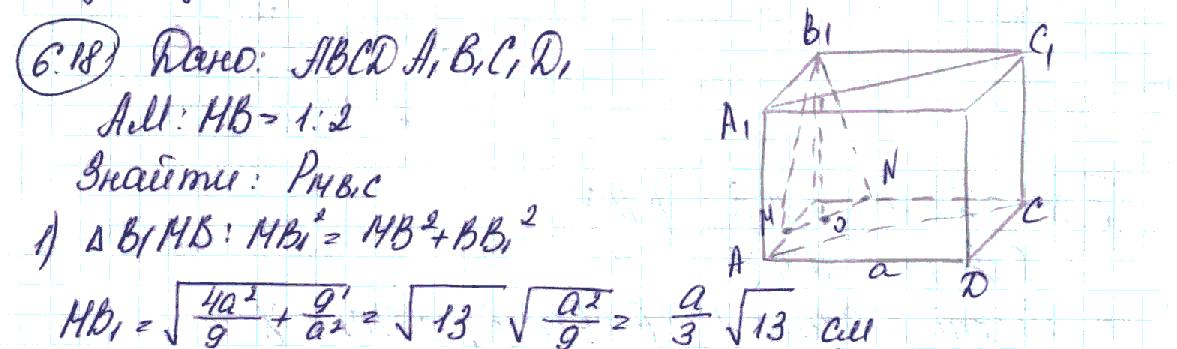 6.18 Дано: ABCDA₁B₁C₁D₁
AM : MB = 1:2
Знайти: P_MB₁C
1) Δ B₁MB: MB₁² = MB² + BB₁²
MB₁ = √(4a²/9 + 9¹/a²) = √13 √(a²/9) = a/3 √13 см
B₁
C₁
A₁
N
M
O
C
A
a
D